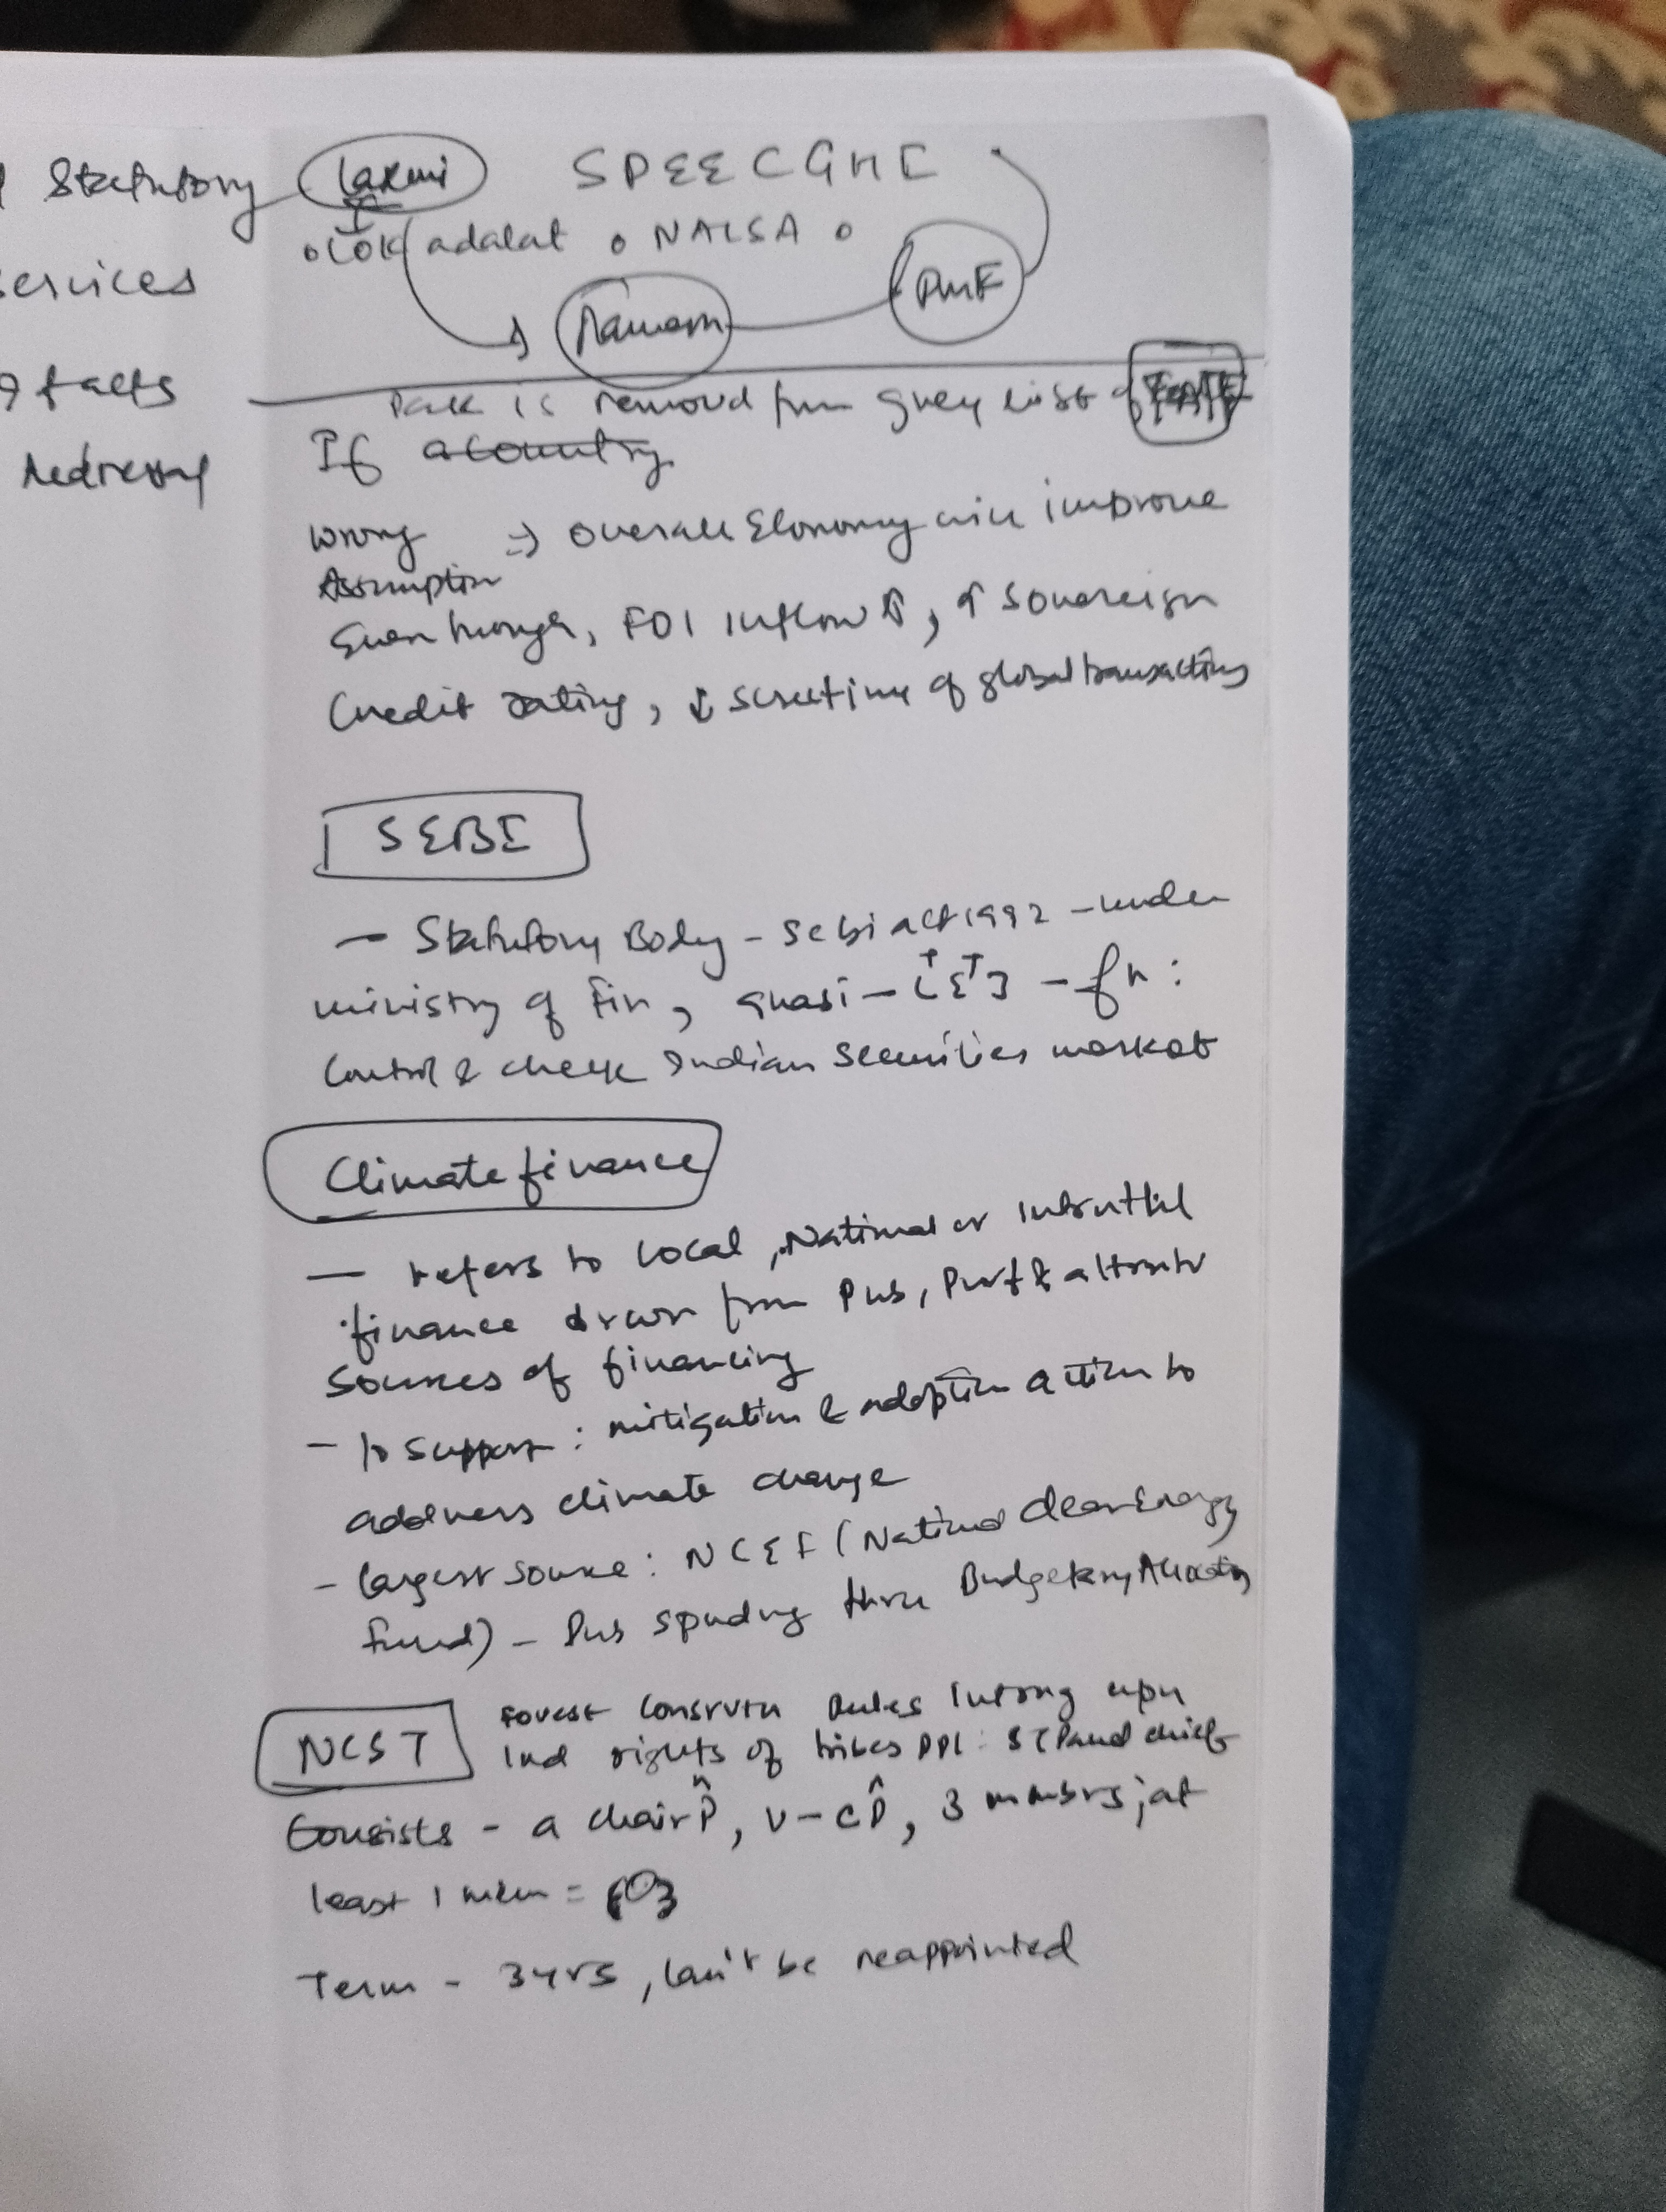 Statutory
services
facts
Redressal
Laxmi SPEECGHC
Lok adalat NALSA
PMF
Pak is removed from grey list of FATF
If a country
Wrong => Overall Economy will improve
Assumption
Even though, FDI Inflow ↑, ↑ Sovereign
Credit rating, ↓ scrutiny of global transactions
SEBI
— Statutory Body - Sebi act 1992 - under
ministry of Fin, quasi - - fn:
Control & check Indian Securities market
Climate finance
— refers to local, National or
finance drawn from Pub, Pvt &
sources of financing
- to support: mitigation & adoption action to
address climate change
- largest source: NCEF (National Clean Energy
Fund) - Pub spending thru Budgetary Allocation
NCST
Forest Rules upn
Ind rights of tribes PPL: chief
Consists - a chair P̂, V-CP̂, 3 membrs; at
least 1 mem =
Term - 3 yrs, can't be reappointed